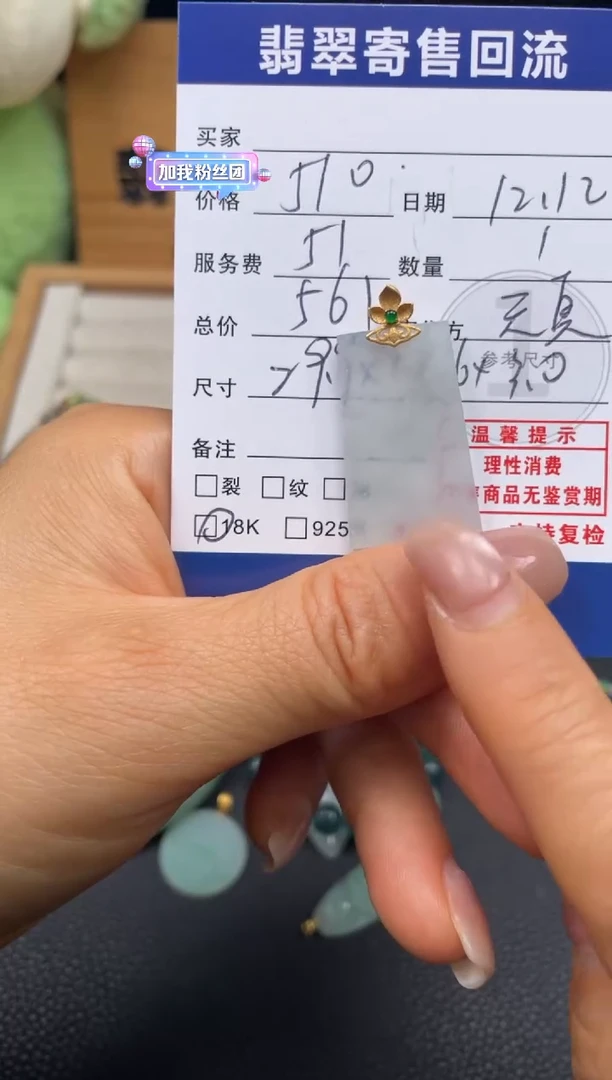 翡翠寄售回流
买家
加我粉丝团
价格 510 日期 12.12
服务费 51 数量 1
总价 561 方 天夏
参考尺寸
尺寸
温馨提示
备注
理性消费
裂 纹
商品无鉴赏期
18K 925
支持复检